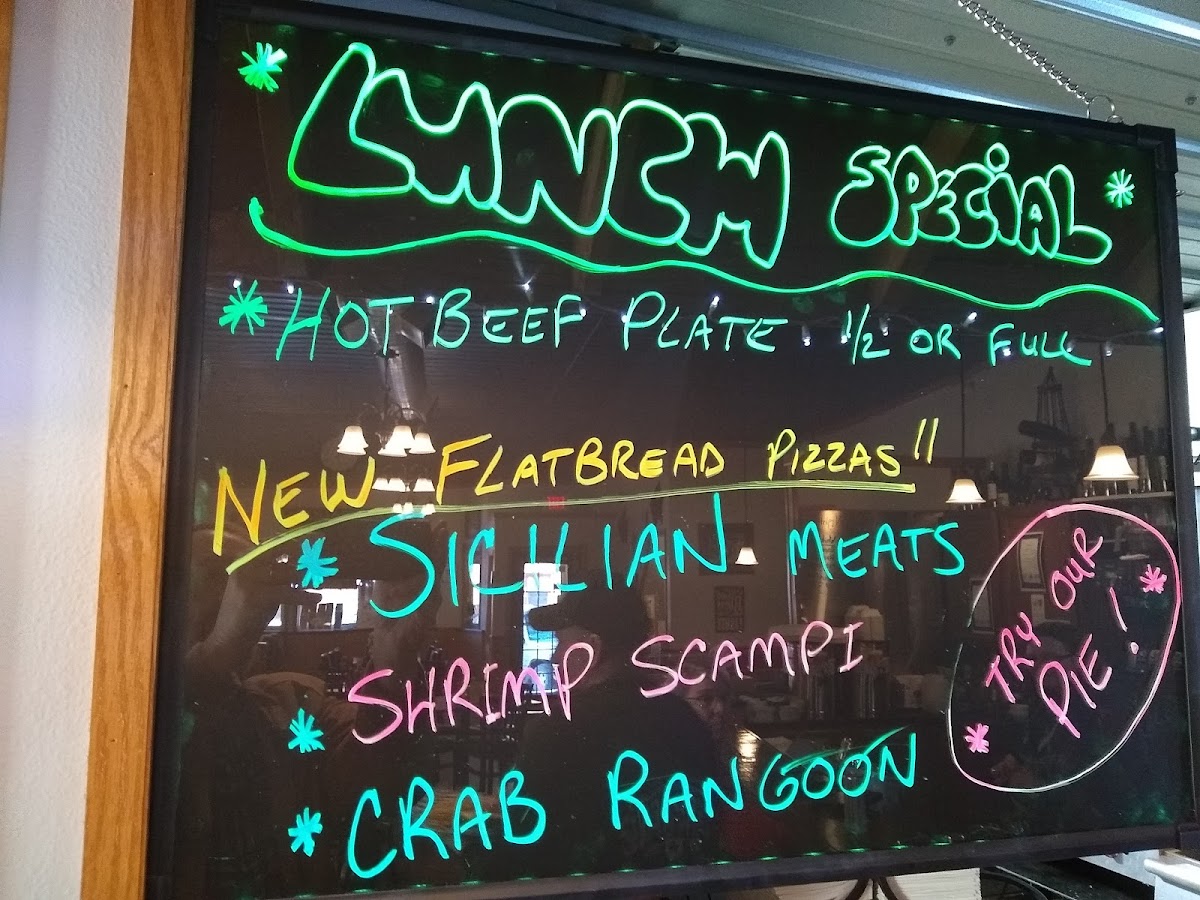 * LUNCH SPECIAL *
* HOT BEEF PLATE 1/2 OR FULL
NEW FLATBREAD PIZZAS!!
* SICILIAN MEATS
* SHRIMP SCAMPI
* CRAB RANGOON
* TRY OUR *
PIE!